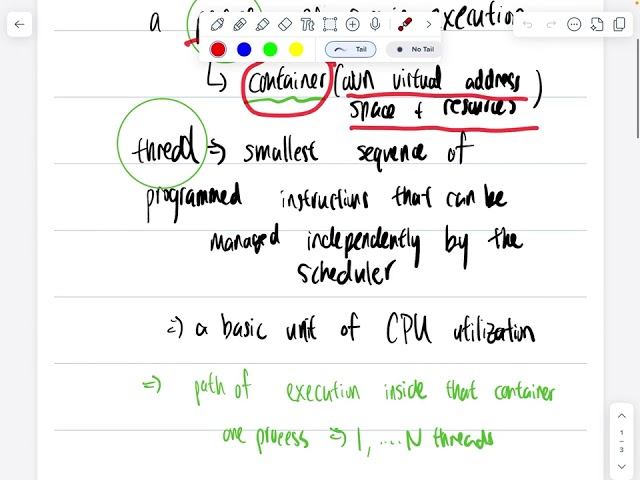 a execution
Tail No Tail
↳ container (own virtual address
space + resources)
thread => smallest sequence of
programmed instructions that can be
managed independently by the
scheduler
=> a basic unit of CPU utilization
=> path of execution inside that container
one process => 1, .... N threads
1
3